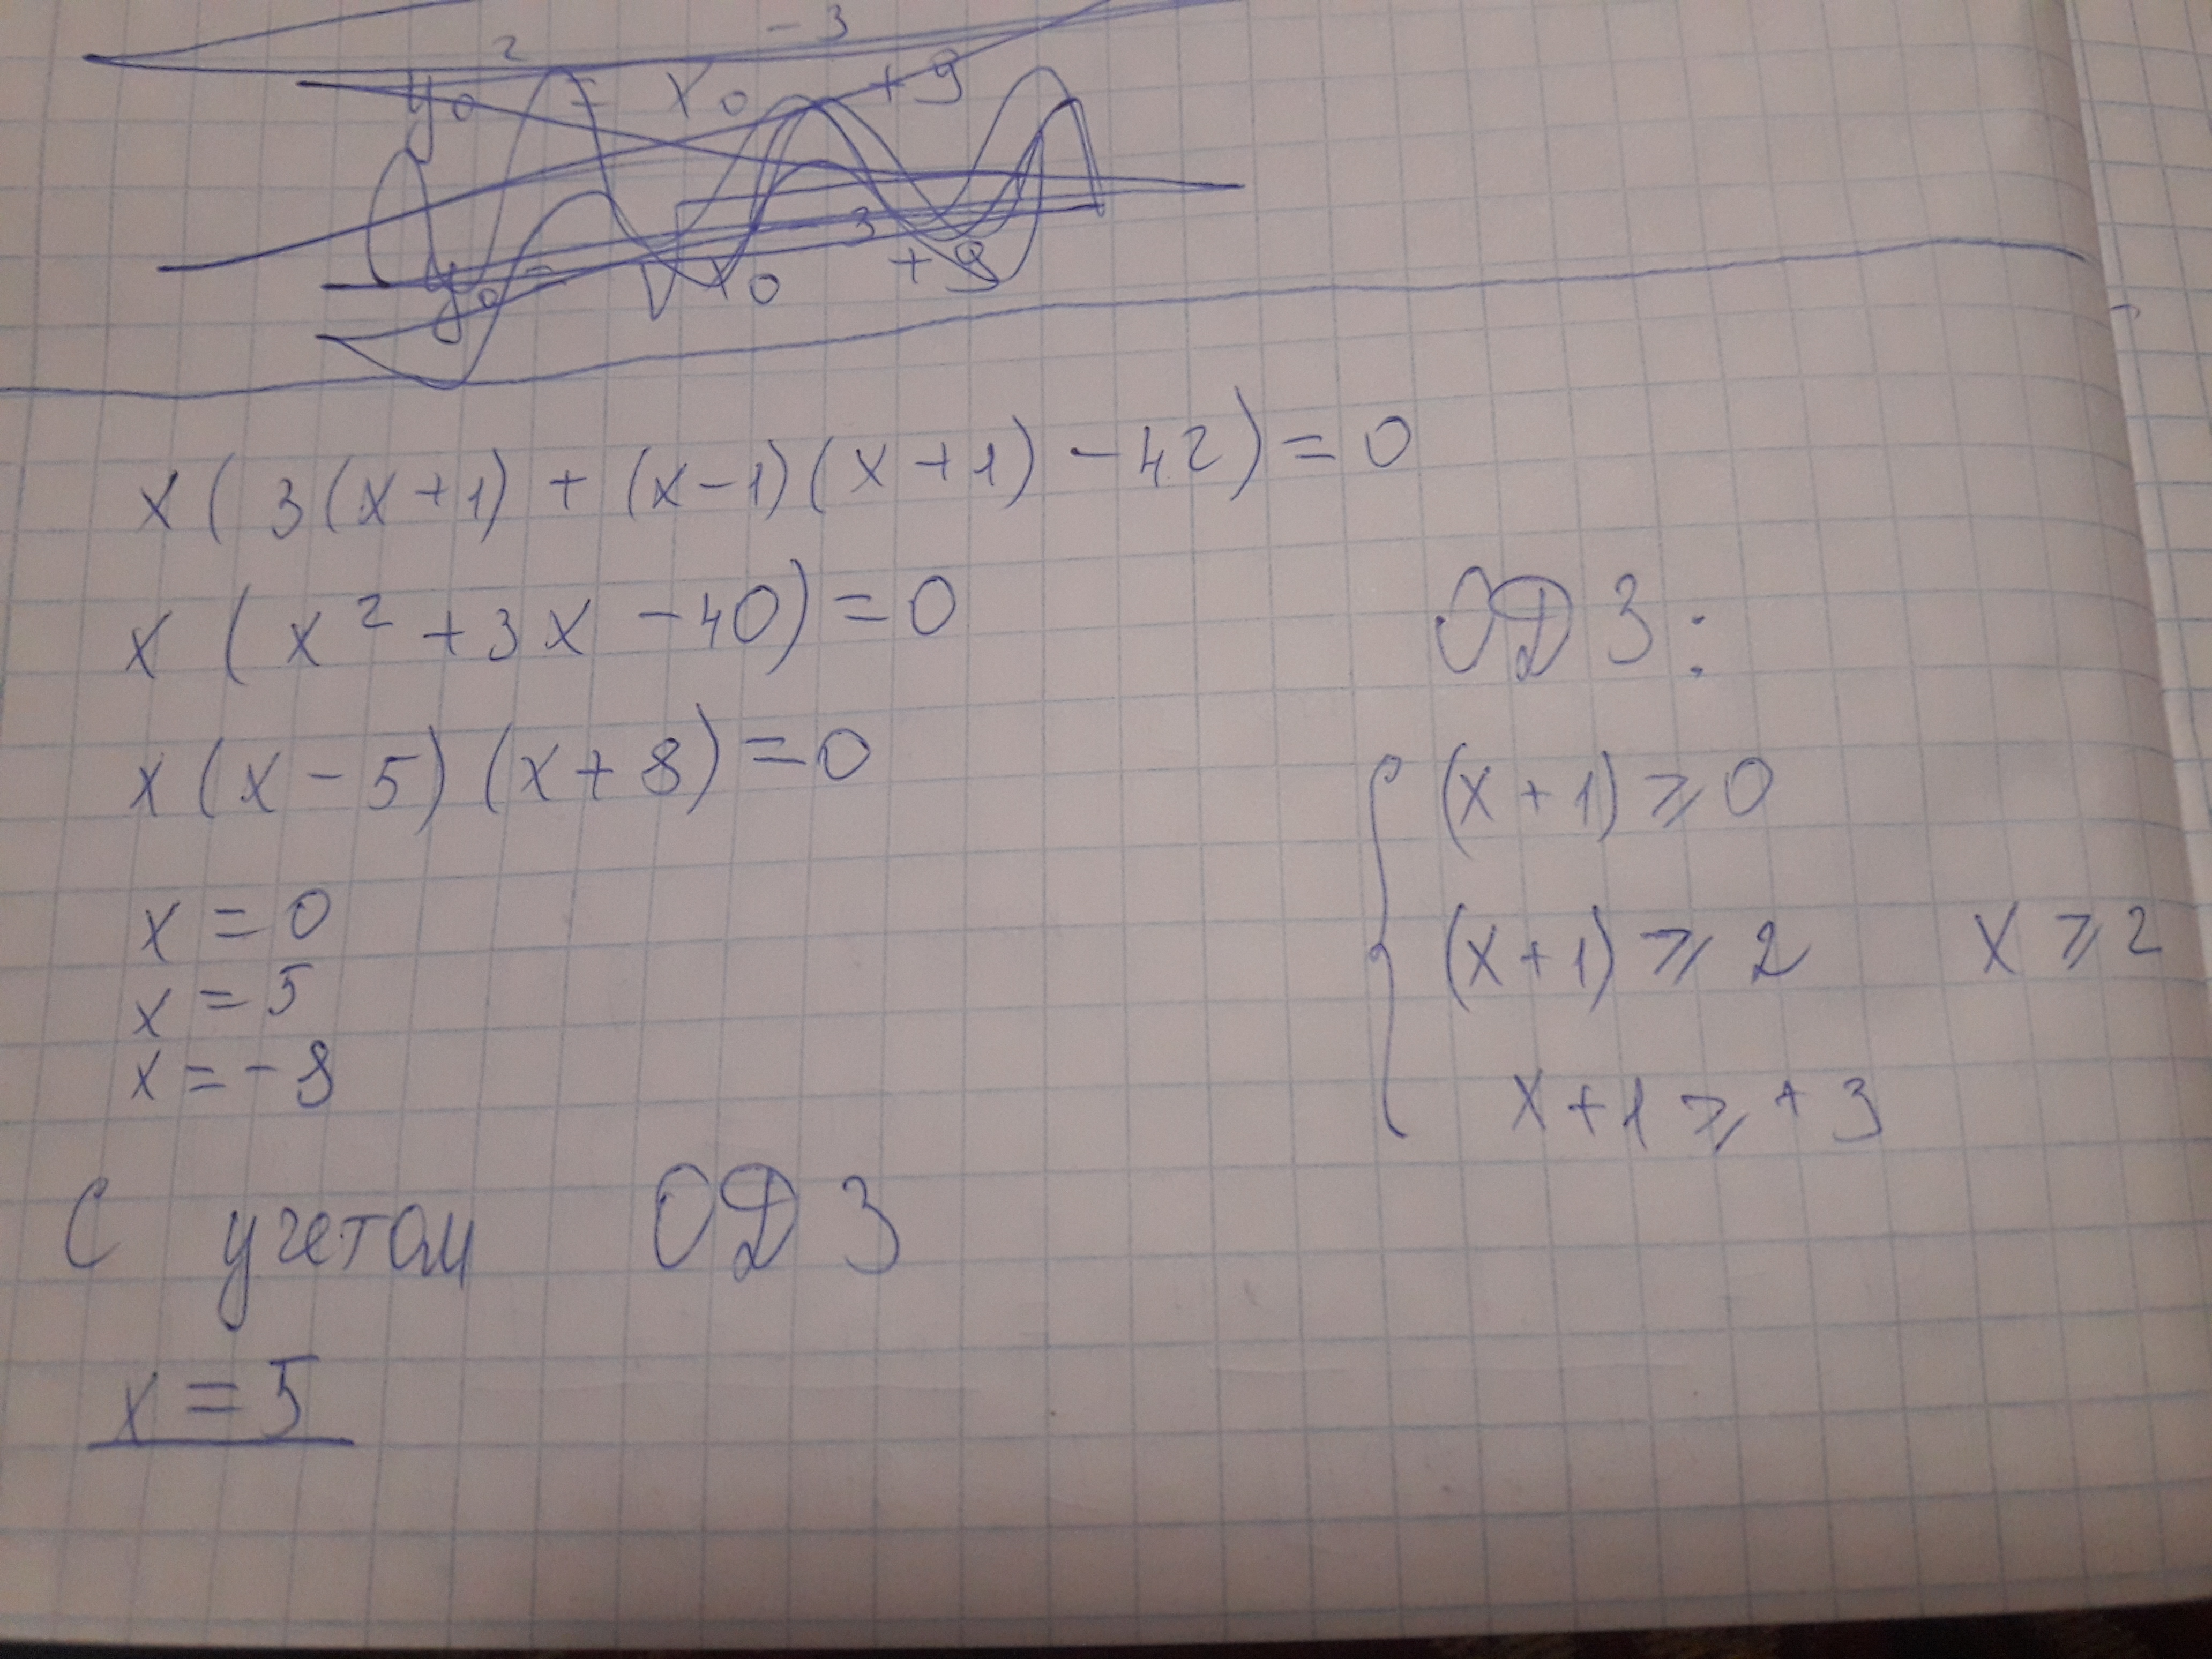 y₀² = x₀⁻³ + 9
y₀ = √x₀⁻³ + 9
x(3(x+1) + (x-1)(x+1) - 42) = 0
x(x² + 3x - 40) = 0
x(x - 5)(x + 8) = 0
x = 0
x = 5
x = -8
ОДЗ:
(x + 1) ⩾ 0
(x + 1) ⩾ 2 x ⩾ 2
x + 1 ⩾ + 3
С учетом ОДЗ
x = 5